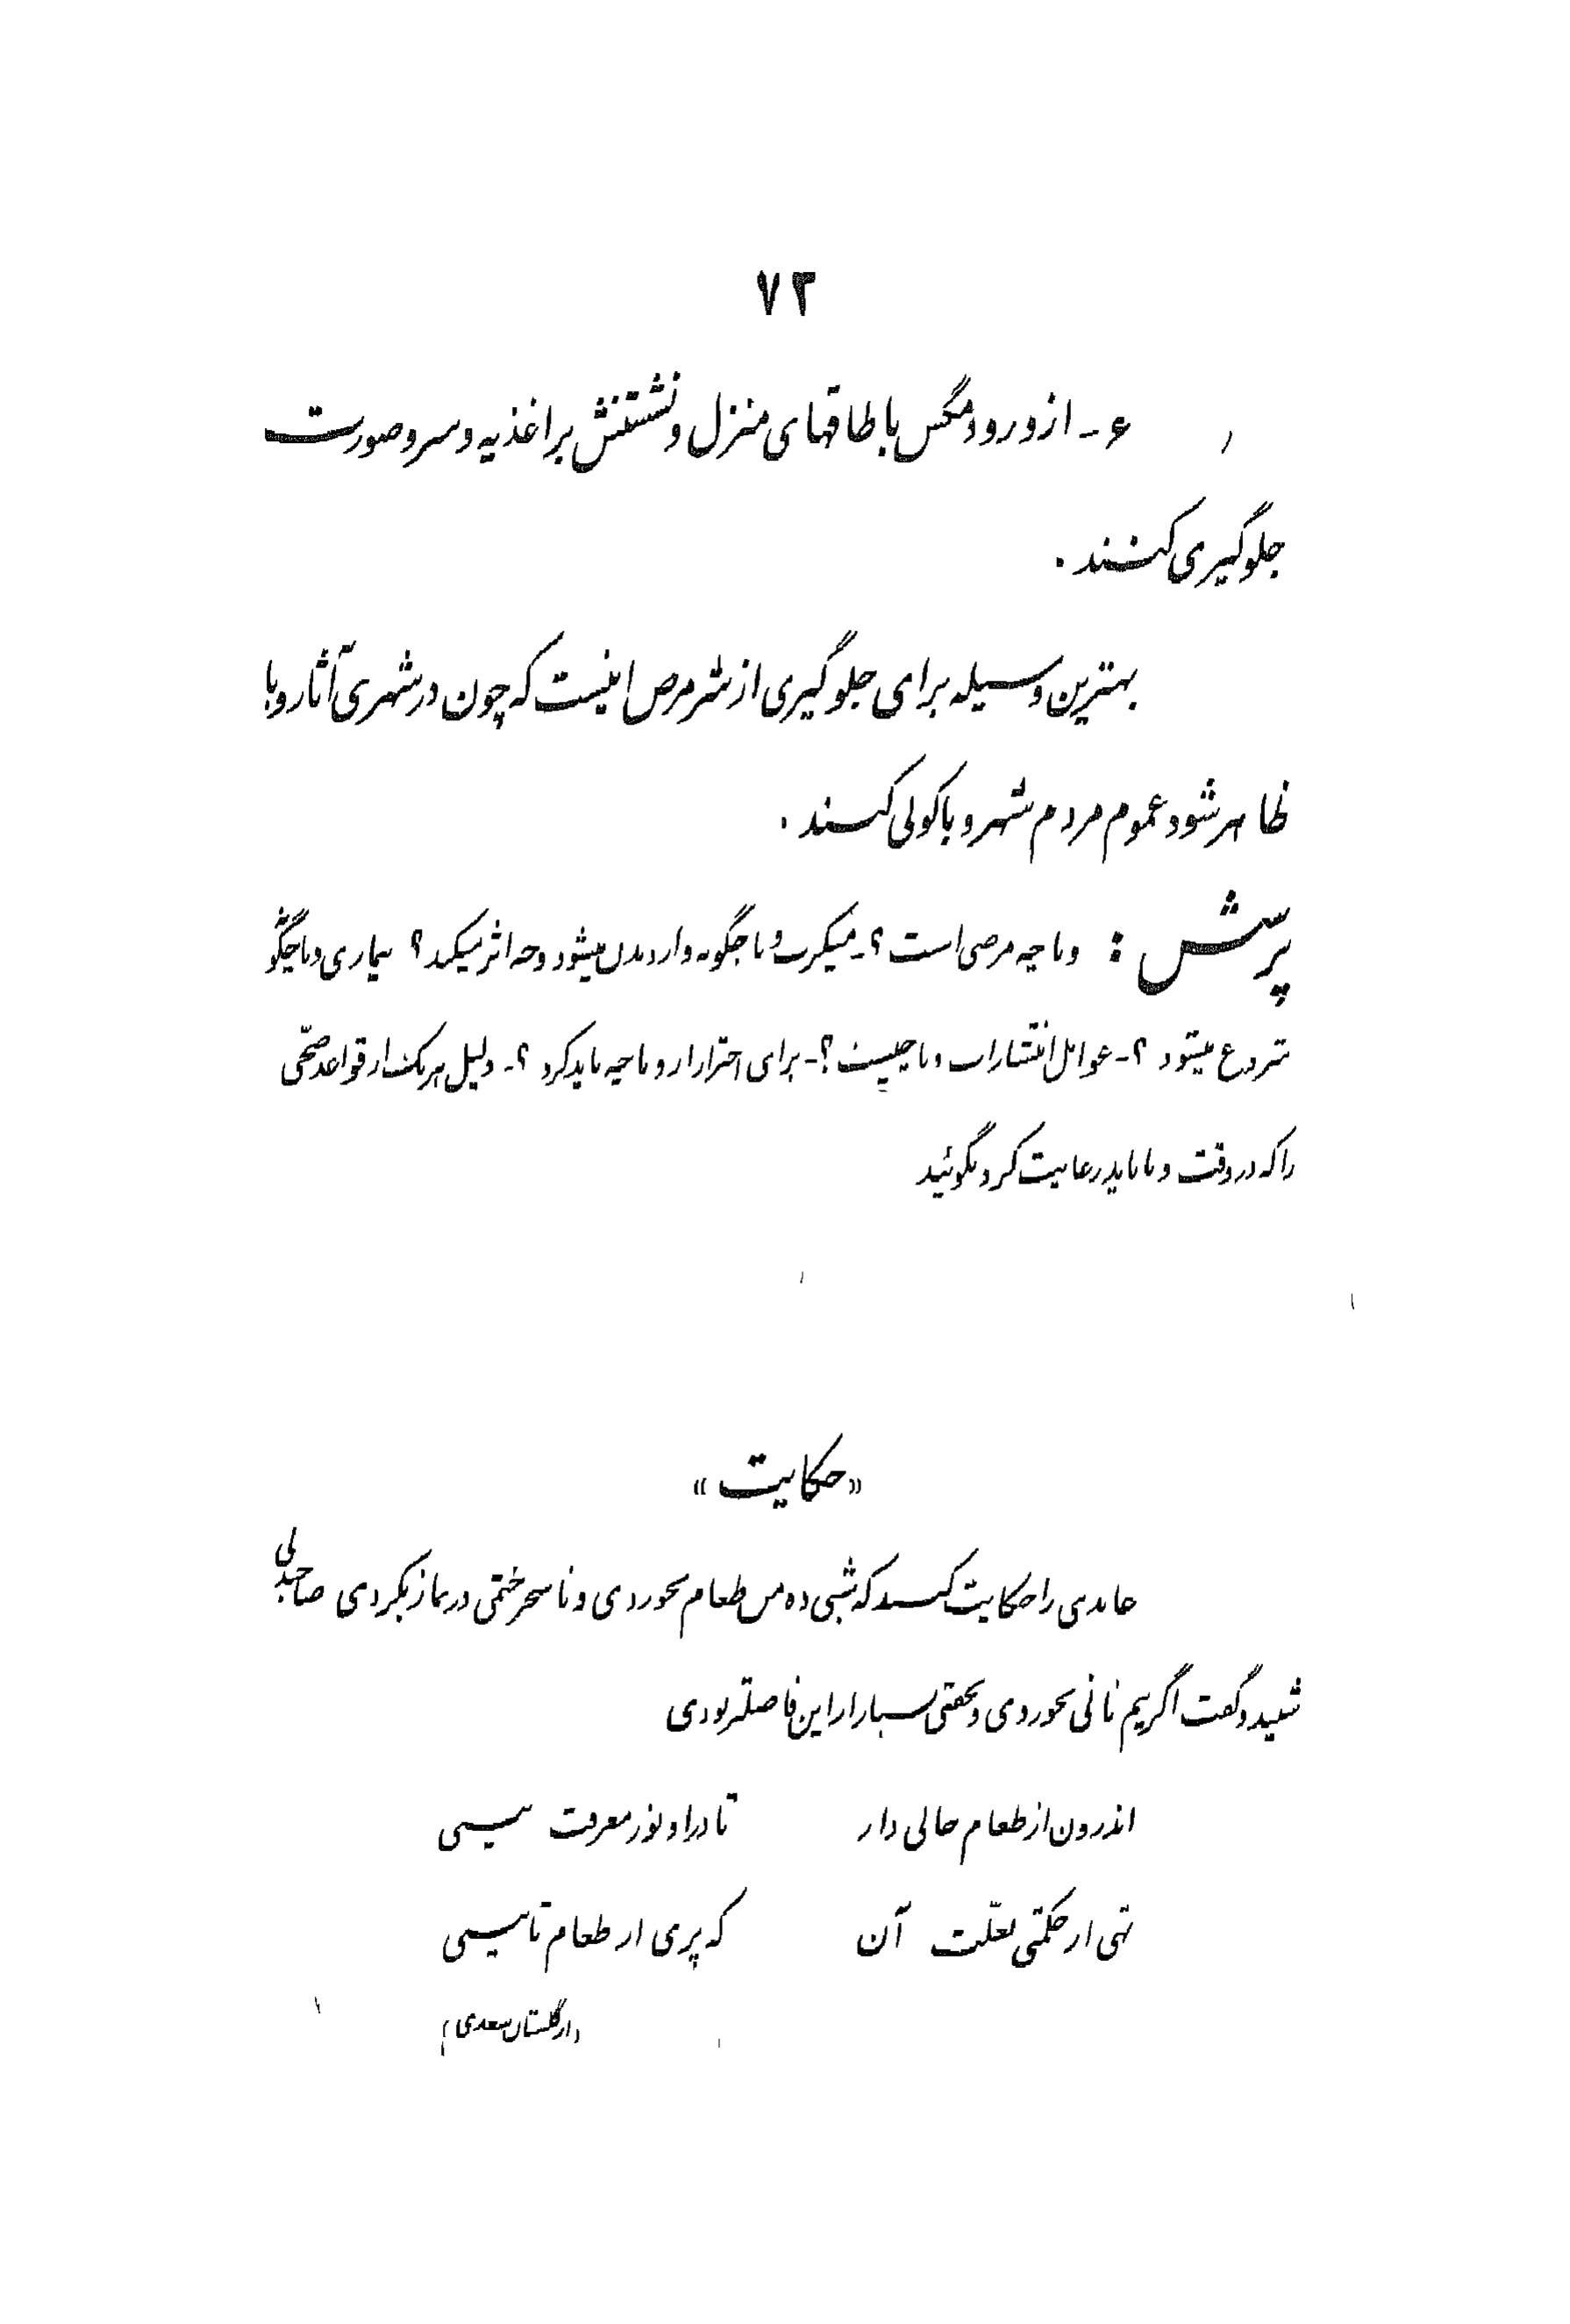 ۷۲
۶ـ از ورود مگس باطاقهای منزل و نشستنش بر اغذیه و سر و صورت
جلوگیری کنند .
بهترین وسیله برای جلوگیری از نشر مرض اینست که چون در شهری آثار وبا
ظاهر شود عموم مردم شهر وباکوبی کنند .
پرسش : وبا چه مرضی است ؟ـ میکرب وبا چگونه وارد بدن میشود و چه اثر میکند ؟ بیماری وبا چگونه
شروع میشود ؟ـ عوامل انتشارات وبا چیست ؟ـ برای احتراز از وبا چه باید کرد ؟ـ دلیل هر یک از قواعد صحّی
را که در وقت وبا باید رعایت کرد بگوئید
«حکایت»
عابدی را حکایت کنند که شبی ده من طعام بخوردی و تا سحر ختمی در نماز بکردی صاحبدلی
شنید و گفت اگر نیم نانی بخوردی و بخفتی بسیار از این فاضلتر بودی
اندرون از طعام خالی دار تا در او نور معرفت بینی
تهی از حکمتی بعلّت آن که پری از طعام تا بینی
(از گلستان سعدی)